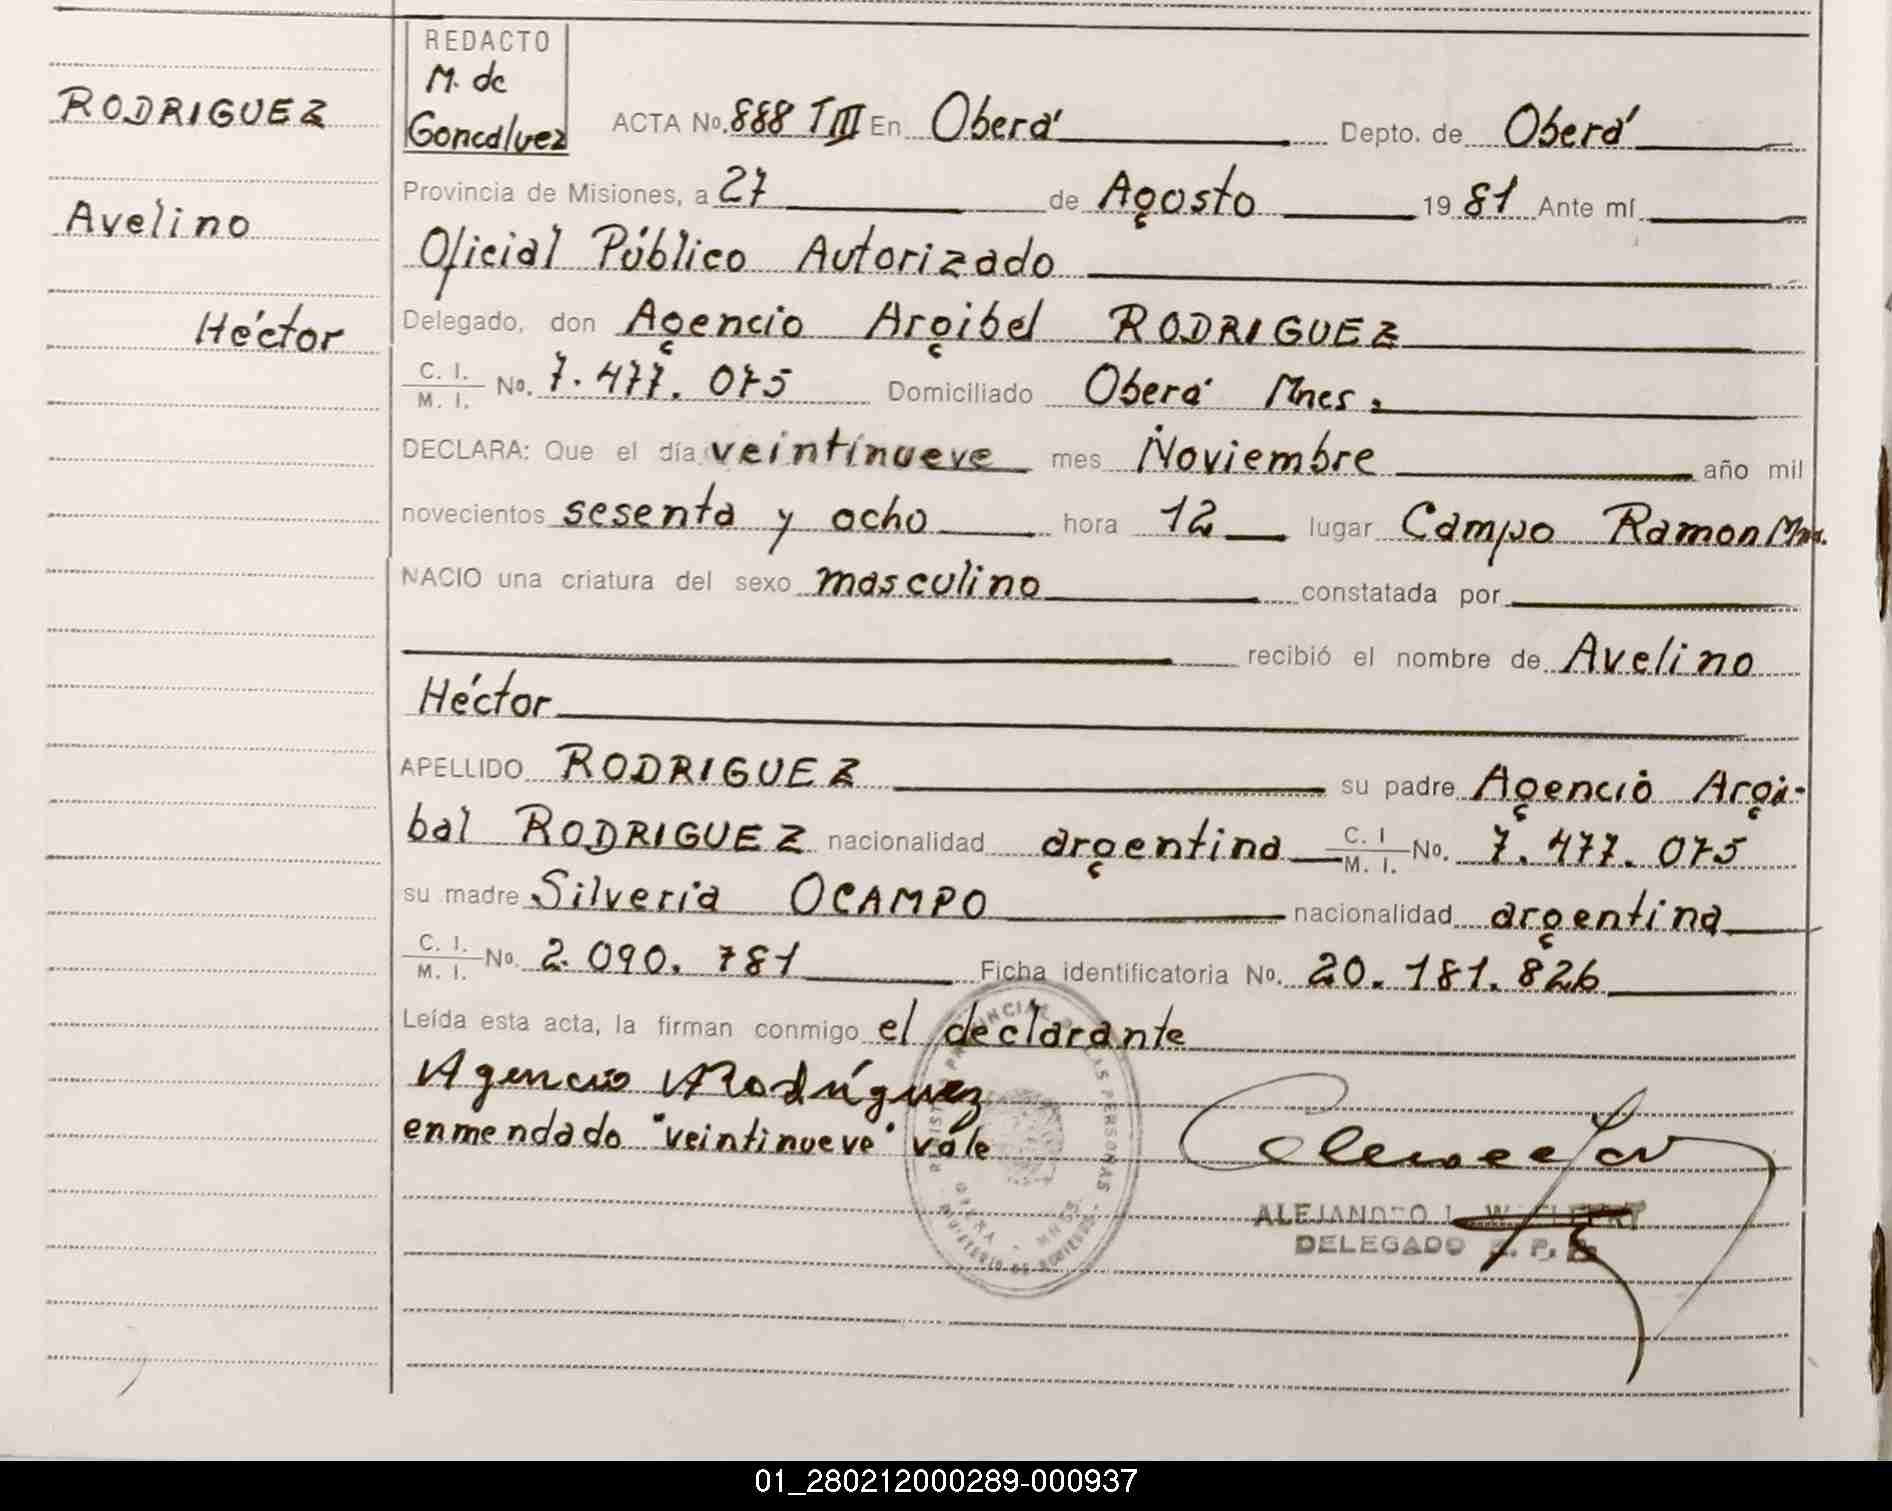 REDACTO
M. de
Goncalvez
RODRIGUEZ
Avelino
Héctor
ACTA No. 888 TIII En Oberá Depto. de Oberá
Provincia de Misiones, a 27 de Agosto 1981 Ante mí
Oficial Público Autorizado
Delegado, don Agencio Argibel RODRIGUEZ
C. I. / M. I. No. 7.477.075 Domiciliado Oberá Mnes.
DECLARA: Que el día veintinueve mes Noviembre año mil
novecientos sesenta y ocho hora 12 lugar Campo Ramon Mns.
NACIO una criatura del sexo masculino constatada por
recibió el nombre de Avelino
Héctor
APELLIDO RODRIGUEZ su padre Agencio Argi-
bal RODRIGUEZ nacionalidad argentina C. I / M. I. No. 7.477.075
su madre Silveria OCAMPO nacionalidad argentina
C. I. / M. I. No. 2.090.781 Ficha identificatoria No. 20.181.826
Leída esta acta, la firman conmigo el declarante
Agencio A Rodríguez
enmendado "veintinueve" vale
ALEJANDRO
DELEGADO
01_280212000289-000937